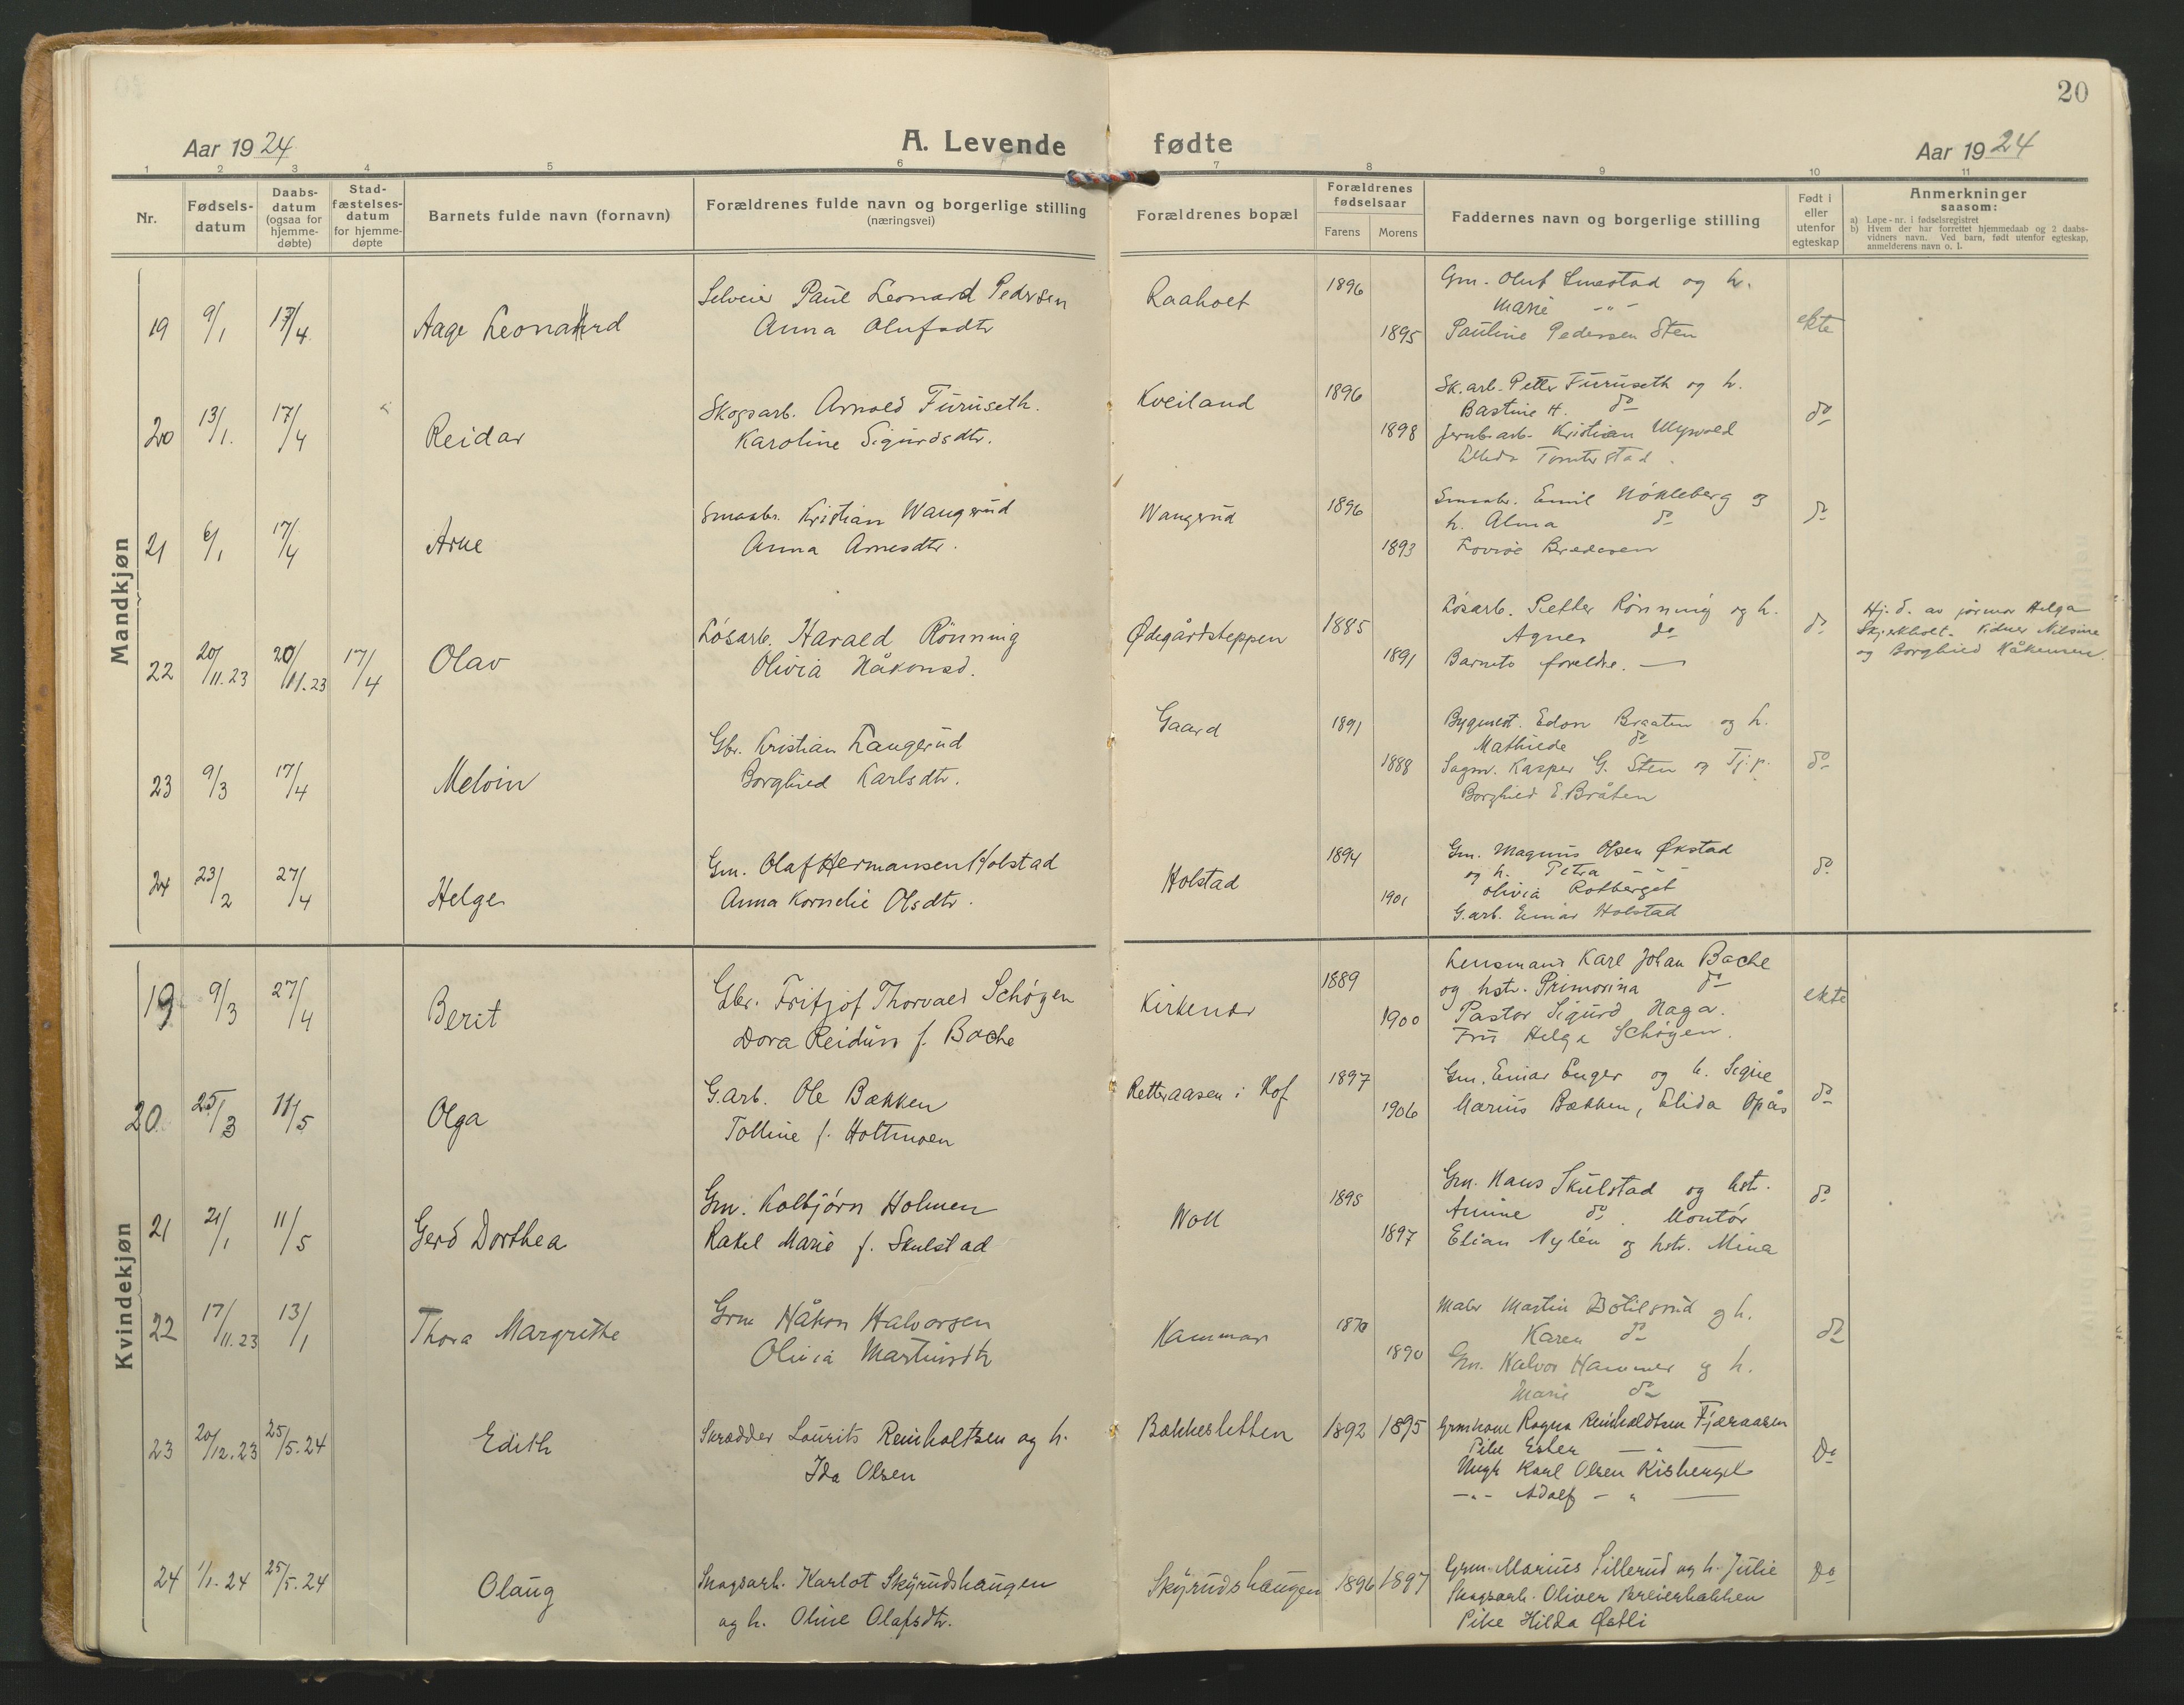 20
Aar 1924
A. Levende fødte
Aar 1924
1 2 3 4 5 6 7 8 9 10 11
Nr.
Fødsels-
datum
Daabs-
datum
(ogsaa for
hjemme-
døbte)
Stad-
fæstelses-
datum
for hjemme-
døpte
Barnets fulde navn (fornavn)
Forældrenes fulde navn og borgerlige stilling
(næringsvei)
Forældrenes bopæl
Forældrenes
fødselsaar
Farens
Morens
Faddernes navn og borgerlige stilling
Født i
eller
utenfor
egteskap
Anmerkninger
saasom:
a) Løpe-nr. i fødselsregistret
b) Hvem der har forrettet hjemmedaab og 2 daabs-
vidners navn. Ved barn, født utenfor egteskap,
anmelderens navn o. l.
Mandkjøn
19 9/1 17/4 Aage Leonard
Selveier Paul Leonard Pedersen
Anna Olufsdtr
Raaholt 1896 1895
Gm. Oluf Smestad og h.
Marie -"-
Pauline Pedersen Sten
ekte
20 13/1. 17/4 Reidar
Skogsarb. Arnold Furuseth.
Karoline Sigurdsdtr.
Kveiland 1896 1898
Sk.arb. Petter Furuseth og h.
Bastine H. do
Jernb.arb. Kristian
Tomterstad
do
21 6/1 17/4 Arne
Smaabr. Kristian Wangerud
Anna Arnesdtr.
Wangerud 1896 1893
Smaabr. Emil Nökleberg og
h. Alma do
Lovise Bredesen
do
22 20/11.23 20/11.23 17/4 Olav
Lösarb. Harald Rönning
Olivia Håkonsd.
Ødegårdsteppen 1885 1891
Lösarb. Petter Rönning og h.
Agnes do
Barnets foreldre. —
do
Hj. d. av jormor Helga
Skjerkholt. Vidner Nilsine
og Borghild Håkensen.
23 9/3 17/4 Melvin
Gbr. Kristian Langerud
Borghild Karlsdtr.
Gaard 1891 1888
Bygmest. Edon Braaten og h.
Mathilde do
Sagm. Kasper G. Sten og Tj.p.
Borghild E. Bråten
do
24 23/2 27/4 Helge
Gm. Olaf Hermansen Holstad
Anna Kornelie Olsdtr.
Holstad 1894 1901
Gm. Magnus Olsen Økstad
og h. Petra - " -
Olivia Rotberget
G.arb. Einar Holstad
do
Kvindekjøn
19 9/3 27/4 Berit
Gbr. Fritjof Thorvald Schöyen
Dora Reidun f. Bache
Kirkenær 1889 1900
Lensmand Karl Johan Bache
og hstr. Primorina do
Pastor Sigurd Haga.
Fru Helga Schöyen.
ekte
20 25/3 11/5 Olga
G.arb. Ole Bækken
Tolline f. Holtmoen
Retteraasen i Hof 1897 1906
Gm. Einar Enger og h. Signe
Marius Bækken, Elida Opås
do
21 21/1 11/5 Gerd Dorthea
Gm. Kolbjörn Holmen
Rakel Marie f. Skulstad
Noll 1895 1897
Gm. Hans Skulstad og hst.
Amine do. Montör
Elian Nylén og hstr. Mina
do
22 17/11.23 13/1 Thora Margrethe
Grm Håkon Halvorsen
Olivia Martinsdtr
Hammar 1870 1890
Maler Martin Bölilsrud og h.
Karen do
Gm. Halvor Hammer og h.
Marie do
do
23 20/12.23 25/5.24 Edith
Skrædder Laurits Reinholtsen og h.
Ida Olsen
Bakkesletten 1892 1895
Grmkone Ragna Reinholdtsen Fjæraasen
Pike Ester — " —
Ungk Karl Olsen Kisberget
-"- Adolf - " —
Do
24 1/1.24 25/5.24 Olaug
Skogsarb. Karlot Skyrudshaugen
og h. Oline Olafsdtr.
Skyrudshaugen 1896 1897
Grm. Marius Lillerud og h. Julie
Skogsarb. Oliver Breierbakken
Pike Hilda Østli
Do